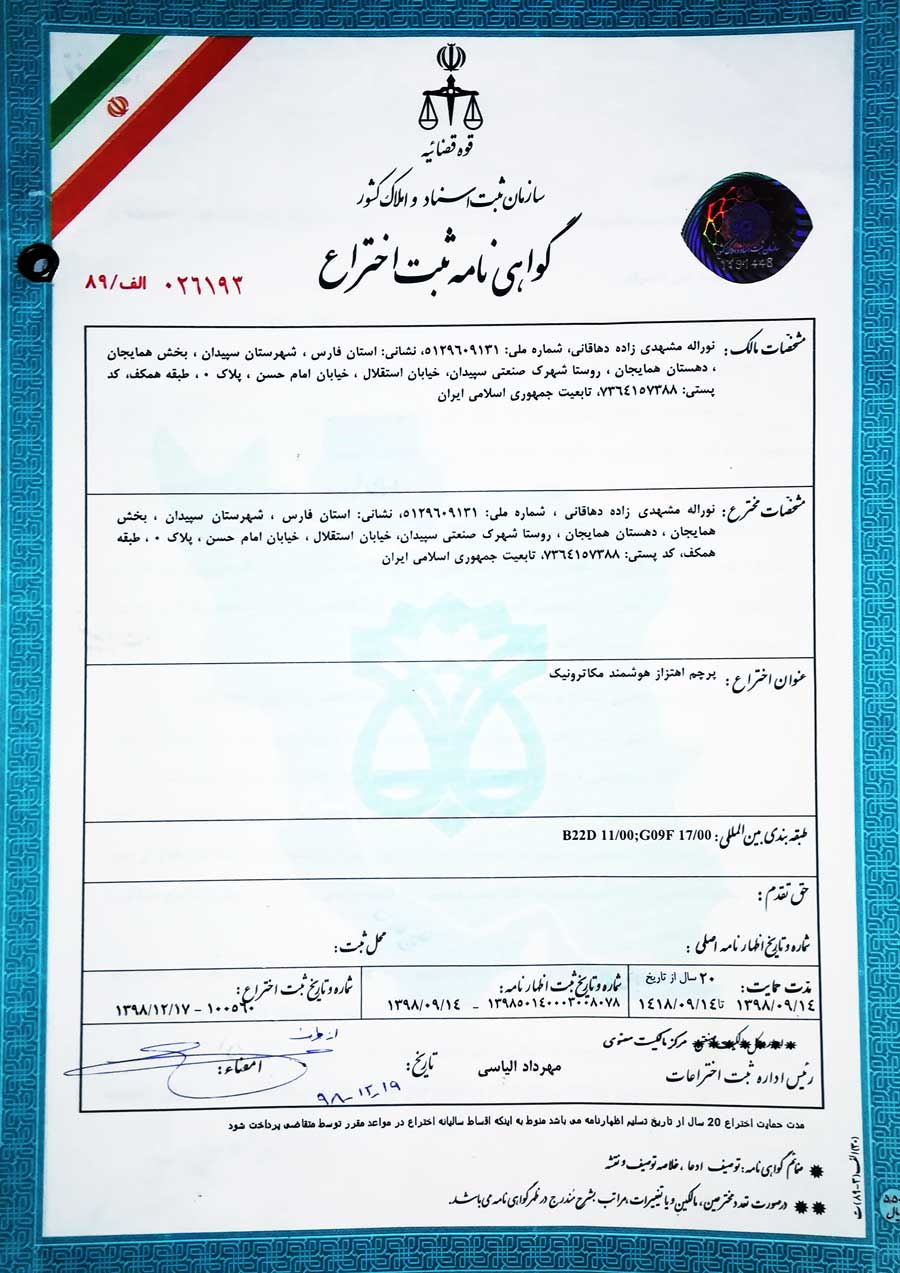 قوه قضائیه
سازمان ثبت اسناد و املاک کشور
گواهی نامه ثبت اختراع
۰۲٦۱۹۳ الف/۸۹
مشخصات مالک: نوراله مشهدی زاده دهاقانی، شماره ملی: ۵۱۲۹٦۰۹۱۳۱، نشانی: استان فارس ، شهرستان سپیدان ، بخش همایجان
، دهستان همایجان ، روستا شهرک صنعتی سپیدان، خیابان استقلال ، خیابان امام حسن ، پلاک ۰ ، طبقه همکف، کد
پستی: ۷۳٦٤۱۵۷۳۸۸، تابعیت جمهوری اسلامی ایران
مشخصات مخترع: نوراله مشهدی زاده دهاقانی ، شماره ملی: ۵۱۲۹٦۰۹۱۳۱، نشانی: استان فارس ، شهرستان سپیدان ، بخش
همایجان ، دهستان همایجان ، روستا شهرک صنعتی سپیدان، خیابان استقلال ، خیابان امام حسن ، پلاک ۰ ، طبقه
همکف، کد پستی: ۷۳٦٤۱۵۷۳۸۸، تابعیت جمهوری اسلامی ایران
عنوان اختراع: پرچم اهتزاز هوشمند مکاترونیک
طبقه بندی بین المللی: B22D 11/00;G09F 17/00
حق تقدم:
شماره و تاریخ اظهارنامه اصلی: محل ثبت:
مدت حمایت: ۲۰ سال از تاریخ
۱۳۹۸/۰۹/۱٤ تا ۱٤۱۸/۰۹/۱٤
شماره و تاریخ ثبت اظهارنامه:
۱۳۹۸۵۰۱٤۰۰۰۳۰۰۸۰۷۸ - ۱۳۹۸/۰۹/۱٤
شماره و تاریخ ثبت اختراع:
۱۰۰۵٦۰ - ۱۳۹۸/۱۲/۱۷
مرکز مالکیت معنوی
رئیس اداره ثبت اختراعات مهرداد الیاسی تاریخ: امضاء:
۹۸-۱۲-۱۹
مدت حمایت اختراع 20 سال از تاریخ تسلیم اظهارنامه می باشد منوط به اینکه اقساط سالیانه اختراع در مواعد مقرر توسط متقاضی پرداخت شود
ضمائم گواهی نامه: توصیف ادعا، خلاصه توصیف و نقشه
در صورت تعدد مخترعین، مالکین و یا تغییرات، مراتب بشرح مندرج در ظهر گواهی نامه می باشد.